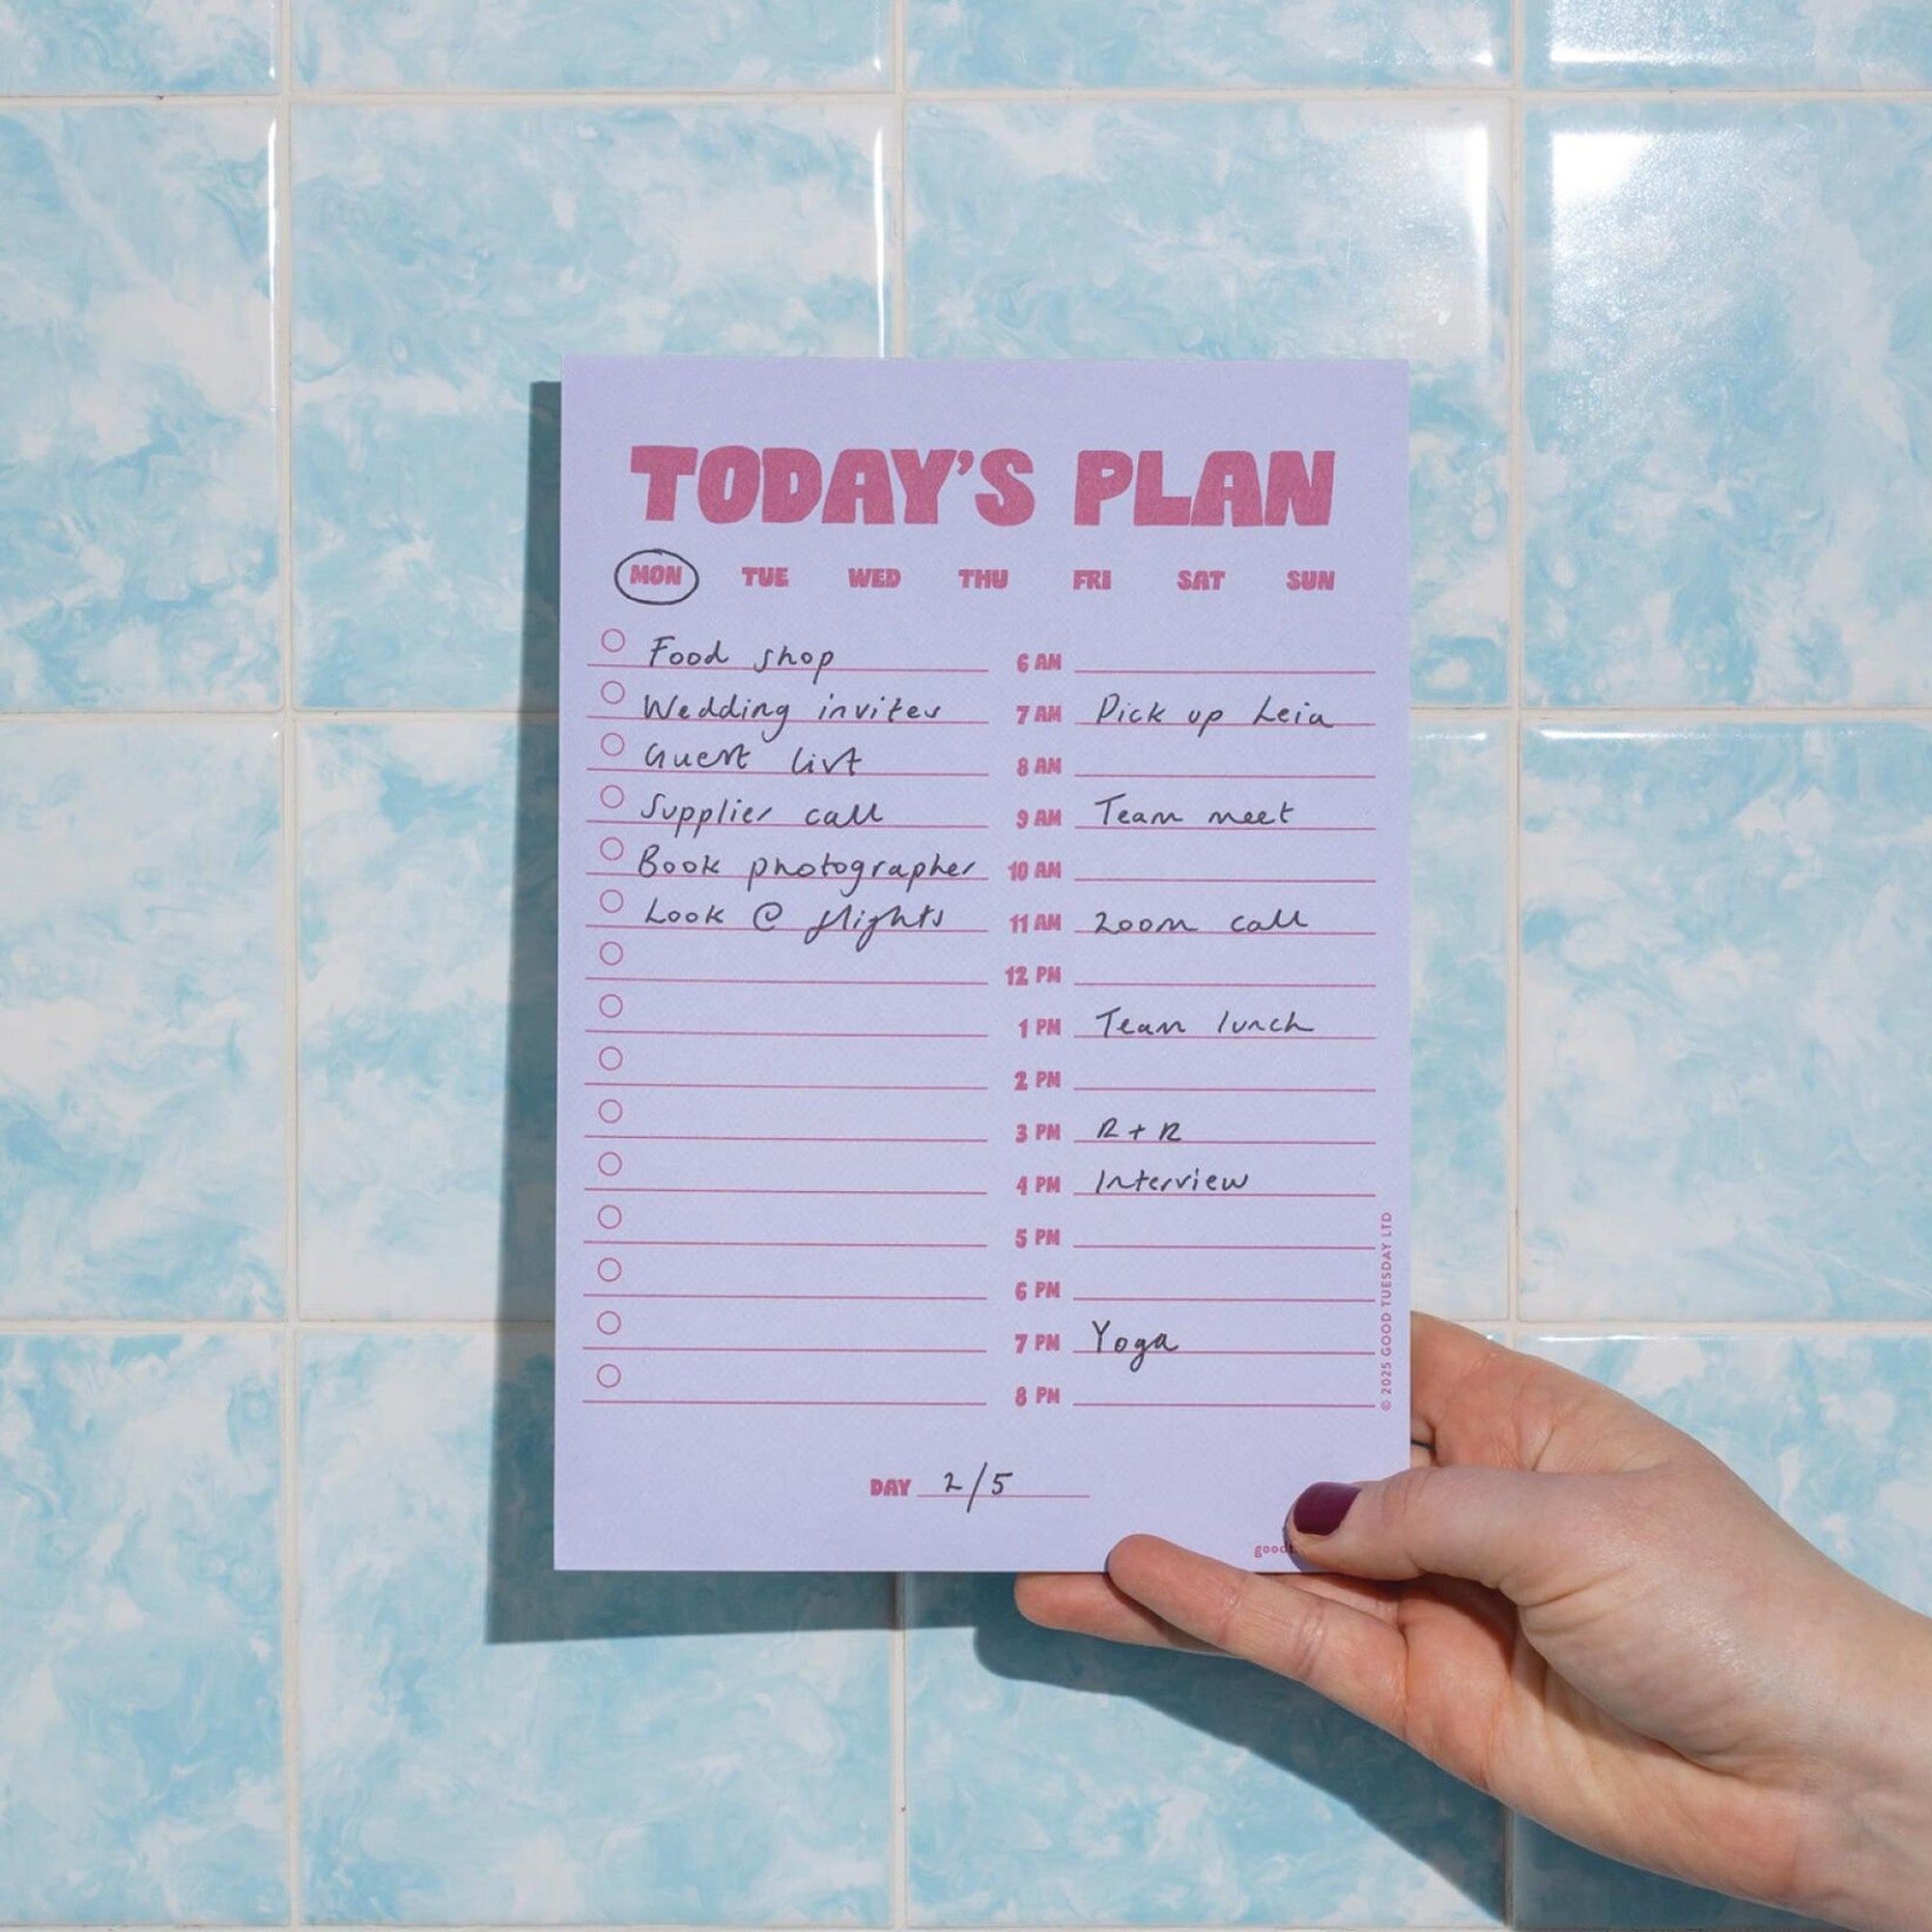 TODAY'S PLAN
MON TUE WED THU FRI SAT SUN
Food shop
Wedding invites
Guest list
Supplier call
Book photographer
Look @ flights
6 AM
7 AM Pick up Leia
8 AM
9 AM Team meet
10 AM
11 AM Zoom call
12 PM
1 PM Team lunch
2 PM
3 PM R + R
4 PM Interview
5 PM
6 PM
7 PM Yoga
8 PM
DAY 2/5
© 2025 GOOD TUESDAY LTD